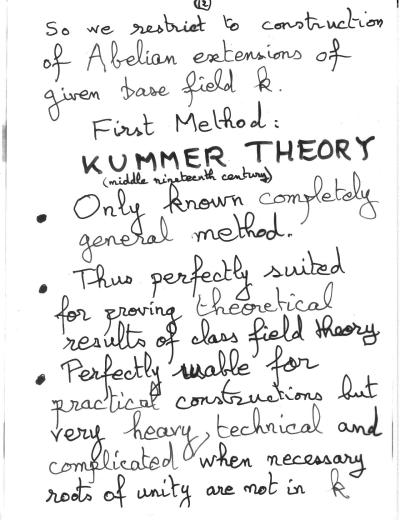 12
So we restrict to construction
of Abelian extensions of
given base field k.
First Method:
KUMMER THEORY
(middle nineteenth century)
• Only known completely
general method.
• Thus perfectly suited
for proving theoretical
results of class field theory
• Perfectly usable for
practical constructions but
very heavy, technical and
complicated when necessary
roots of unity are not in k